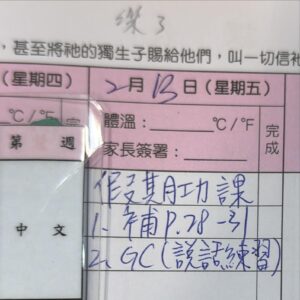 ，甚至將祂的獨生子賜給他們，叫一切信祂
(星期四) 2月13日(星期五)
°C/°F 體溫：°C/°F 完成
第 週 家長簽署：
中文 假期功課
1. 補P.28-31
2. GC(說話練習)